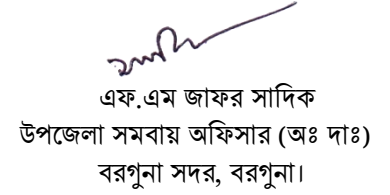 এফ.এম জাফর সাদিক
উপজেলা সমবায় অফিসার (অঃ দাঃ)
বরগুনা সদর, বরগুনা।